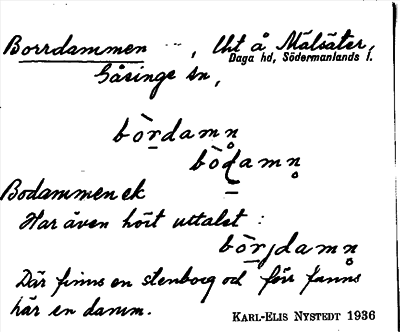 Borrdammen , Utt å Mälsäter,
Daga hd, Södermanlands l.
Gåsinge sn,
bòrdamn̥
bòdamn̥
Bodammen ek
Har även hört uttalet :
bòrdamn̥
Där finns en stenbro od förr fanns
här en damm.
KARL-ELIS NYSTEDT 1936